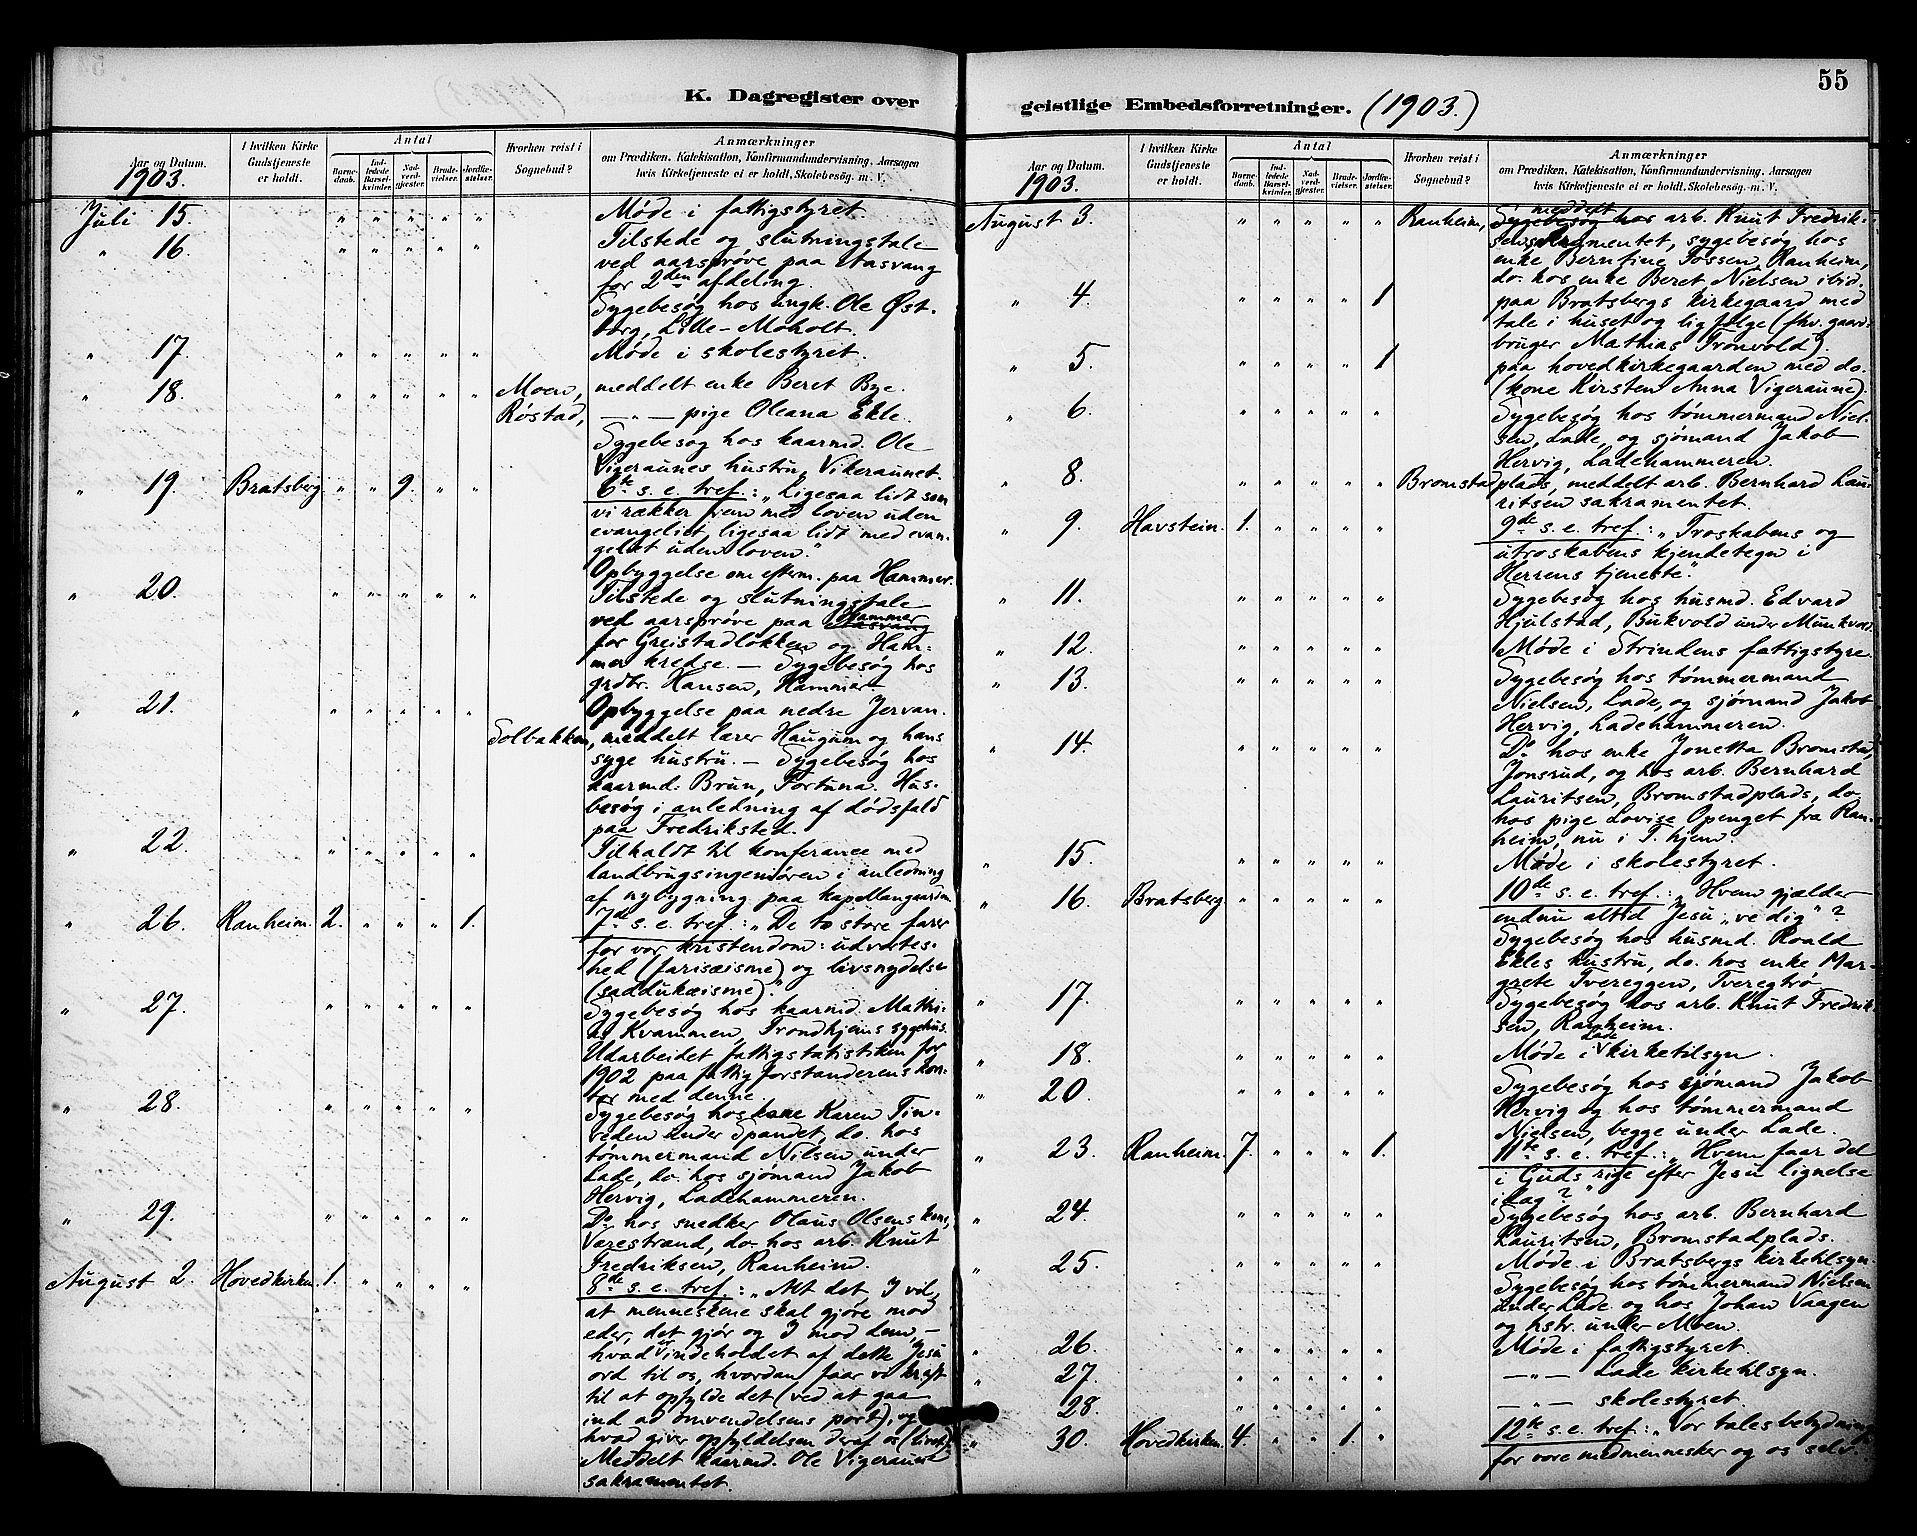 K. Dagregister over
Aar og Datum.
1903.
I hvilken Kirke
Gudstjeneste
er holdt.
Antal
Barne-
daab.
Ind-
ledede
Barsel-
kvinder.
Nad-
verd-
gjester.
Brude-
vielser.
Jordfæ-
stelser.
Hvorhen reist i
Sognebud?
Anmærkninger
om Prædiken, Katekisation, Konfirmandundervisning, Aarsagen
hvis Kirketjeneste ei er holdt, Skolebesøg. m. V.
Juli 15 " " " " " Møde i fattigstyret.
" 16. " " " " " Tilstede og slutningstale
ved aarsprøve paa Aasvang
for 2den afdeling.
Sygebesøg hos ungk. Ole Øst-
borg, Lille-Moholt.
" 17. " " " " " Møde i skolestyret.
" 18. " " " " " Moen, meddelt enke Beret Bye.
Røstad, — " — pige Oleana Ekle.
Sygebesøg hos kaarmd. Ole
Vigeraunes hustru, Vikeraunet.
" 19. Bratsberg " " 9. " " 6te s. e. tref.: „Ligesaa lidt som
vi rækker frem med loven uden
evangeliet, ligesaa lidt med evan-
geliet uden loven."
Opbyggelse om efterm. paa Hammer.
" 20. " " " " " Tilstede og slutningstale
ved aarsprøve paa Hammer Aasvang
for Greistadløkken og Ham-
mer kredse. — Sygebesøg hos
grdbr. Hansen, Hammer.
" 21. " " " " " Opbyggelse paa nedre Jervan.
Solbakken, meddelt lærer Haugum og hans
syge hustru. — Sygebesøg hos
kaarmd. Brun, Fortuna. Hus-
besøg i anledning af dødsfald
paa Fredriksted.
" 22. " " " " " Tilkaldt til konferance med
landbrugsingeniøren i anledning
af nybygning paa kapellangaarden
" 26. Ranheim. 2. " " " 1. 7de s. e. tref.: „De to store farer
for vor kristendom: udvortes-
hed (farisæisme) og livsnydelse
(saddukæisme)."
" 27. " " " " " Sygebesøg hos kaarmd. Mathi-
as Kvammen, Trondhjems sygehus.
Udarbeidet fattigstatistiken for
1902 paa fattigforstanderens kon-
tor med denne.
" 28. " " " " " Sygebesøg hos kone Karen Tin-
veden under Spandet, do. hos
tømmermand Nilsen under
Lade, do. hos sjømand Jakob
Hervig, Ladehammeren.
" 29. " " " " " Do hos snedker Olaus Olsens kone,
Værestrand, do. hos arb. Knut
Fredriksen, Ranheim.
August 2. Hovedkirken. 1. " " " " 8de s. e. tref.: „Alt det, I vil,
at menneskene skal gjøre mod
eder, det gjør og I mod dem, —
hvad er indeholdet af dette Jesu
ord til os, hvordan faar vi kraft
til at opfylde det (ved at gaa
ind ad omvendelsens port), og
hvad giver opfyldelsen deraf os (livet)
Meddelt kaarmd. Ole Vigeraunet
sakramentet.
55
geistlige Embedsforretninger. (1903.)
Aar og Datum.
1903.
I hvilken Kirke
Gudstjeneste
er holdt.
Antal
Barne-
daab.
Ind-
ledede
Barsel-
kvinder.
Nad-
verd-
gjester.
Brude-
vielser.
Jordfæ-
stelser.
Hvorhen reist i
Sognebud?
Anmærkninger
om Prædiken, Katekisation, Konfirmandundervisning, Aarsagen
hvis Kirketjeneste ei er holdt, Skolebesøg. m. V.
August 3. " " " " " Ranheim, Sygebesøg hos meddelt arb. Knut Fredrik-
sen sakramentet, sygebesøg hos
enke Bernfine Fossen, Ranheim,
do. hos enke Beret Nielsen ibid.
" 4. " " " " 1 paa Bratsbergs kirkegaard med
tale i huset og ligfølge (fhv. gaard-
bruger Mathias Tronvold).
" 5. " " " " 1 paa hovedkirkegaarden med do.
(kone Kirsten Anna Vigeraune).
" 6. " " " " " Sygebesøg hos tømmermand Niel-
sen, Lade, og sjømand Jakob
Hervig, Ladehammeren.
" 8. " " " " " Bromstadplads, meddelt arb. Bernhard Lau-
ritsen sakramentet.
" 9. Havstein. 1. " " " " 9de s. e. tref.: „Troskabens og
utroskabens kjendetegn i
Herrens tjeneste."
" 11. " " " " " Sygebesøg hos husmd. Edvard
Hjulstad, Bukvold under Munkvold.
" 12. " " " " " Møde i Strindens fattigstyre.
" 13. " " " " " Sygebesøg hos tømmermand
Nielsen, Lade, og sjømand Jakob
Hervig, Ladehammeren.
" 14. " " " " " Do hos enke Jonetta Bromstad,
Jonsrud, og hos arb. Bernhard
Lauritsen, Bromstadplads, do.
hos pige Lovise Openget fra Ran-
heim, nu i T.hjem.
" 15. " " " " " Møde i skolestyret.
" 16. Bratsberg " " " " " 10de s. e. tref.: „Hvem gjælder
endnu altid Jesu „ve dig"?
Sygebesøg hos husmd. Roald
Ekles hustru, do. hos enke Mar-
grete Tvereggen, Tveregtrø
" 17. " " " " " Sygebesøg hos arb. Knut Fredrik-
sen, Ranheim.
" 18. " " " " " Møde i Lade kirketilsyn.
" 20. " " " " " Sygebesøg hos sjømand Jakob
Hervig og hos tømmermand
Nielsen, begge under Lade.
" 23. Ranheim. 7. " " " 1. 11te s. e. tref.: „Hvem faar del
i Guds rige efter Jesu lignelse
idag?"
" 24. " " " " " Sygebesøg hos arb. Bernhard
Lauritsen, Bromstadplads.
" 25. " " " " " Møde i Bratsbergs kirketilsyn.
Sygebesøg hos tømmermand Nielsen
under Lade og hos Johan Vaagen
og hstr. under Moen.
" 26. " " " " " Møde i fattigstyret.
" 27. " " " " " — " — Lade kirketilsyn.
" 28. " " " " " — " — skolestyret.
" 30. Hovedkirken. 4. " " 1. " 12te s. e. tref.: „Vor tales betydning
for vore medmennesker og os selv."